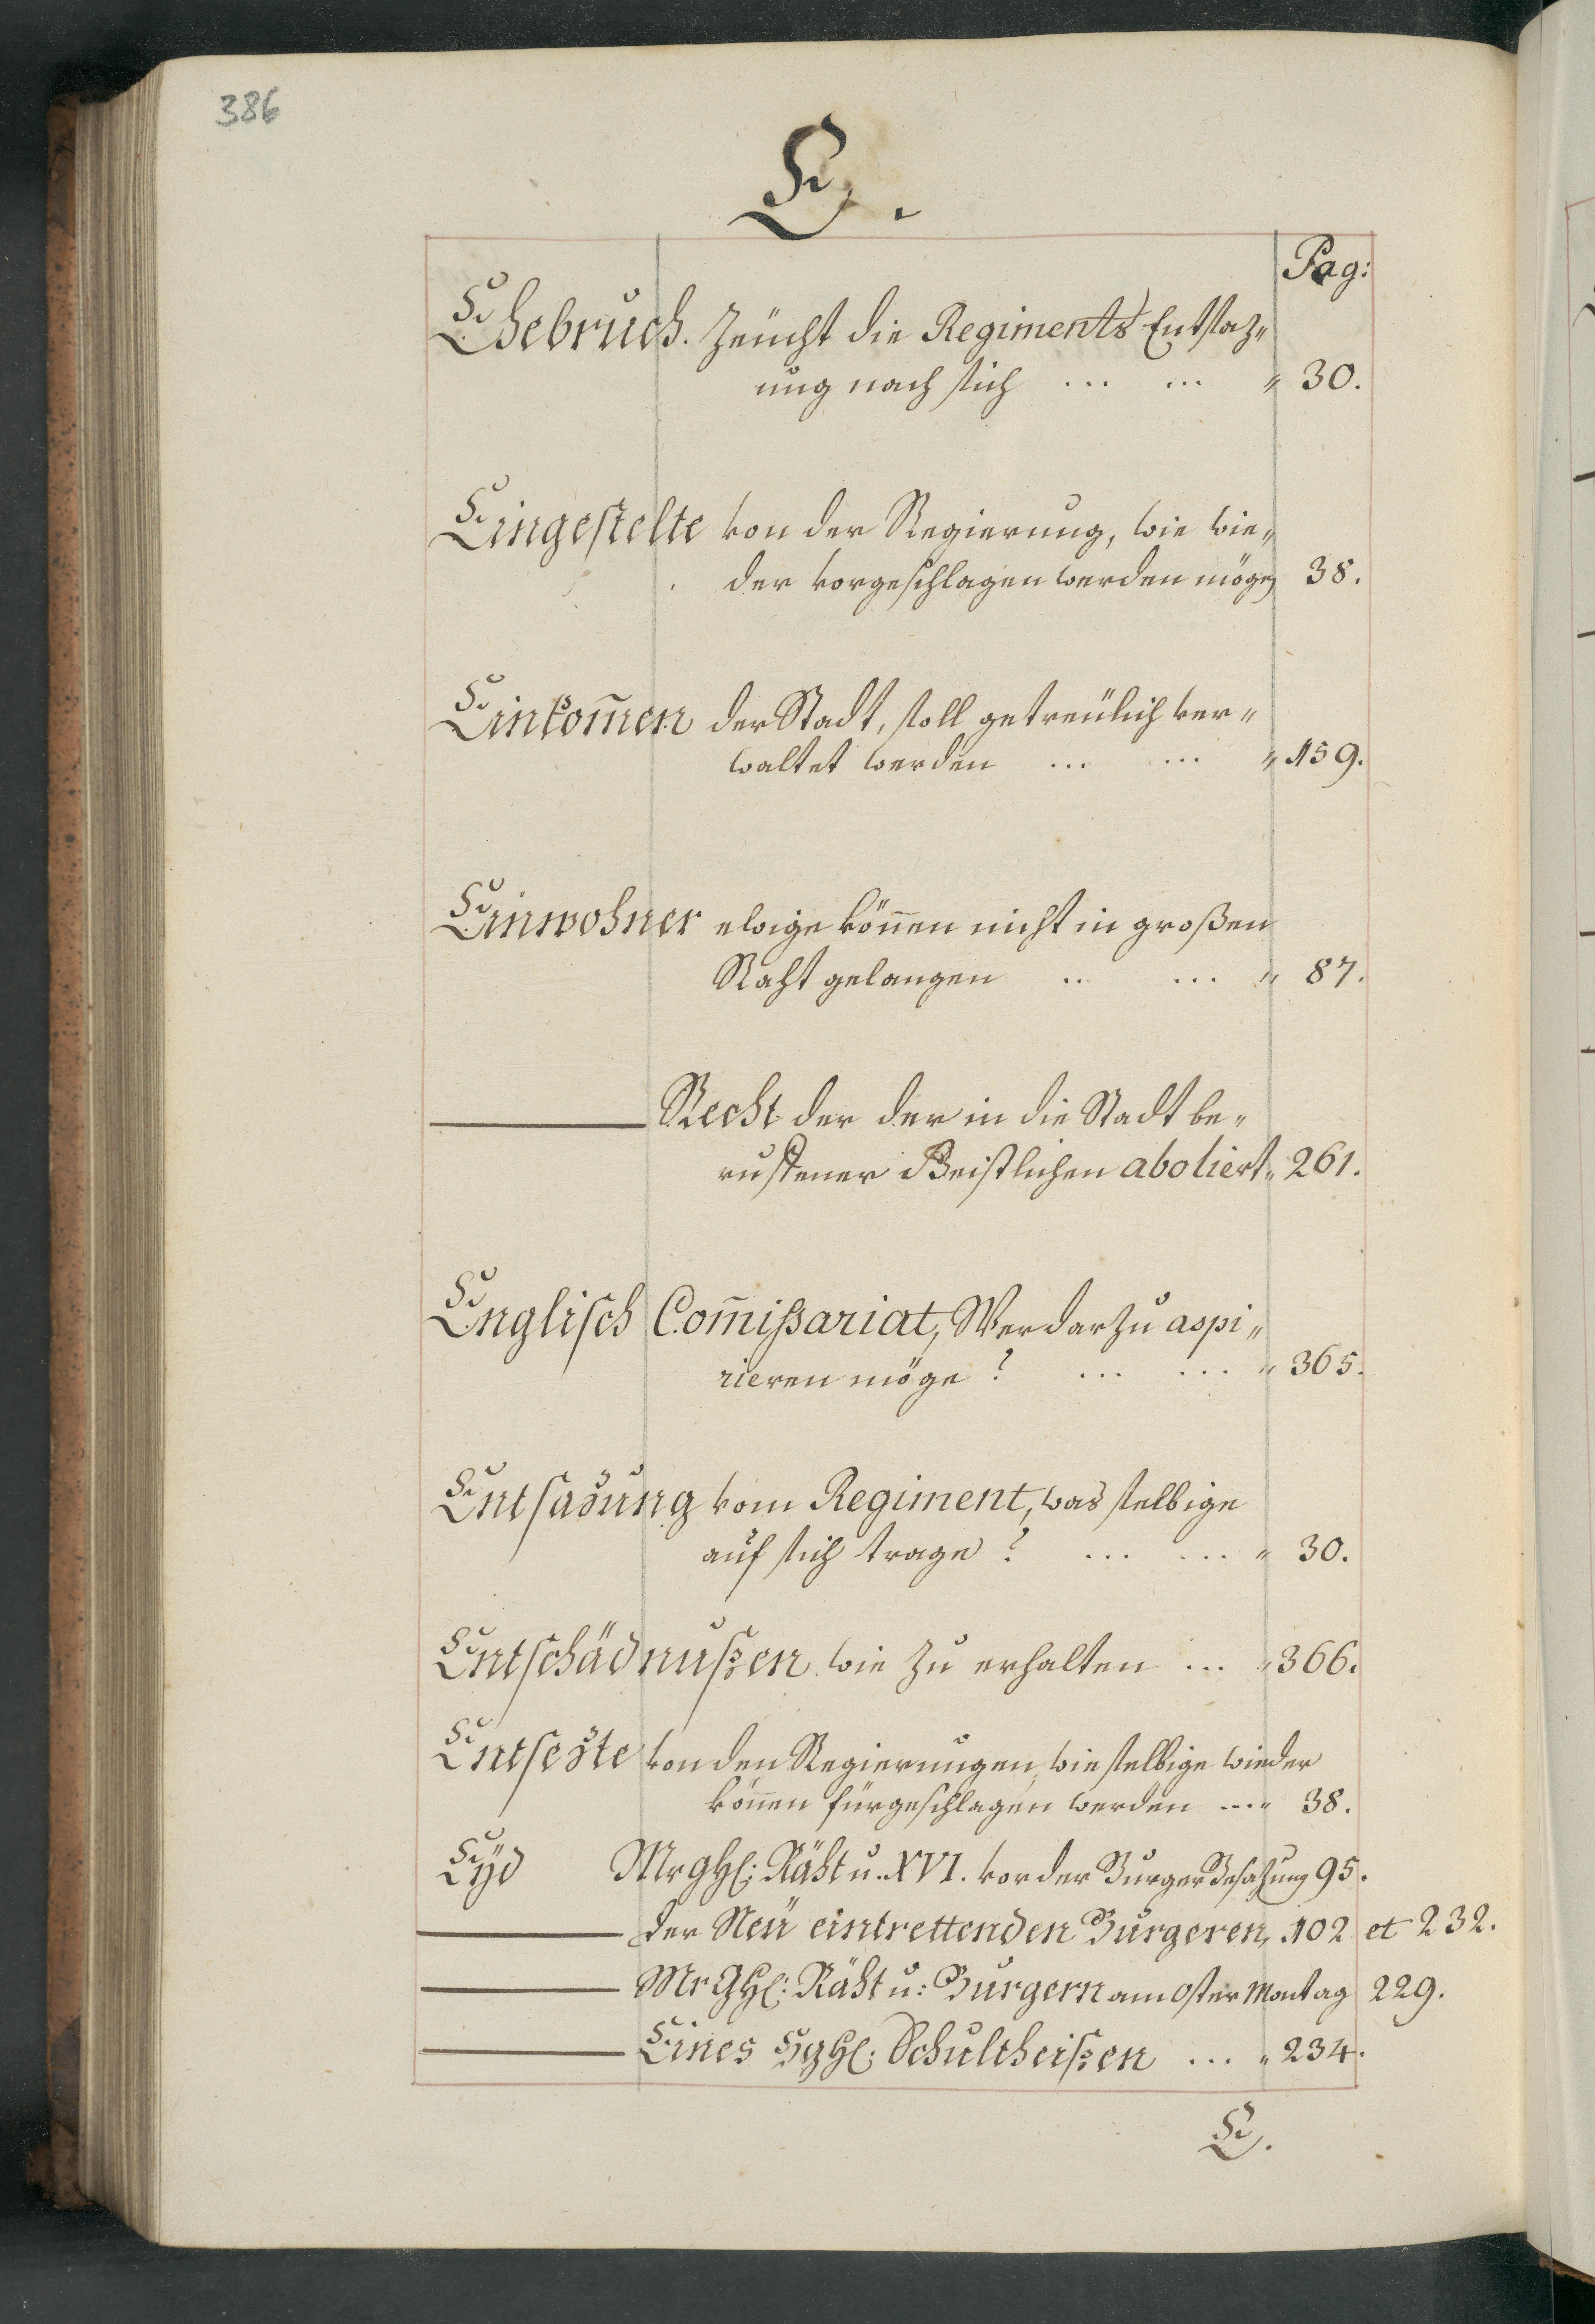 386
E.
Pag:
Ehebruch. zeücht die Regiments Entsaz„
ung nach sich ... ... „ 30.
Eingestelte von der Regierung, wie wie„
der vorgeschlagen werden mögen 38.
Einkom̄en der Stadt, soll getreülich ver„
waltet werden ... ... „ 159.
Einwohner ewige kön̄en nicht in großen
Raht gelangen .. ... „ 87.
——— Recht der der in die Stadt be„
ruffener Geistlichen aboliert „ 261.
Englisch Com̄ißariat, Wer darzu aspi„
rieren möge? ... ... „ 365.
Entsazung vom Regiment, was selbige
auf sich trage? ... ... „ 30.
Entschädnußen wie zu erhalten ... „ 366.
Entsezte von den Regierungen, wie selbige wieder
kön̄en fürgeschlagen werden ... „ 38.
Eyd MrghH: Räht u. XVI. vor der Burger Besazung 95.
——— der Neü eintrettenden Burgeren, 102 et 232.
——— MrGhH: Räht u: Burgern am Oster Montag 229.
——— Eines HghH: Schultheißen ... „ 234.
E.